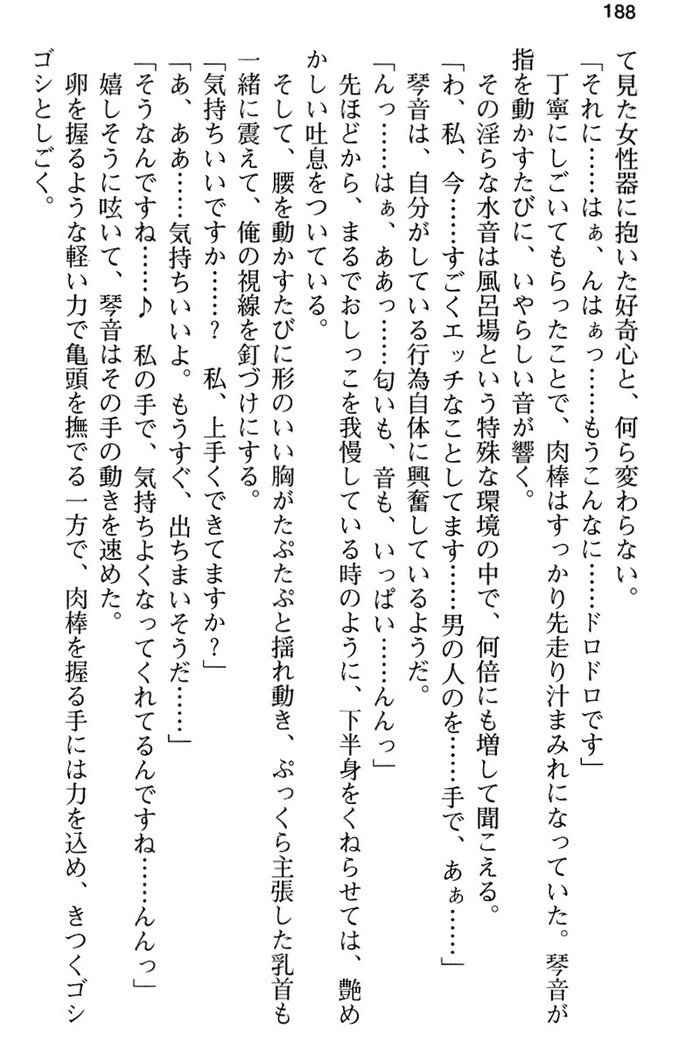 188
て見た女性器に抱いた好奇心と、何ら変わらない。
「それに……はぁ、んはぁっ……もうこんなに……ドロドロです」
丁寧にしごいてもらったことで、肉棒はすっかり先走り汁まみれになっていた。琴音が
指を動かすたびに、いやらしい音が響く。
その淫らな水音は風呂場という特殊な環境の中で、何倍にも増して聞こえる。
「わ、私、今……すごくエッチなことしてます……男の人のを……手で、あぁ……」
琴音は、自分がしている行為自体に興奮しているようだ。
「んっ……はぁ、ああっ……匂いも、音も、いっぱい……んんっ」
先ほどから、まるでおしっこを我慢している時のように、下半身をくねらせては、艶め
かしい吐息をついている。
そして、腰を動かすたびに形のいい胸がたぷたぷと揺れ動き、ぷっくら主張した乳首も
一緒に震えて、俺の視線を釘づけにする。
「気持ちいいですか……？　私、上手くできてますか？」
「あ、ああ……気持ちいいよ。もうすぐ、出ちまいそうだ……」
「そうなんですね……♪　私の手で、気持ちよくなってくれてるんですね……んんっ」
嬉しそうに呟いて、琴音はその手の動きを速めた。
卵を握るような軽い力で亀頭を撫でる一方で、肉棒を握る手には力を込め、きつくゴシ
ゴシとしごく。